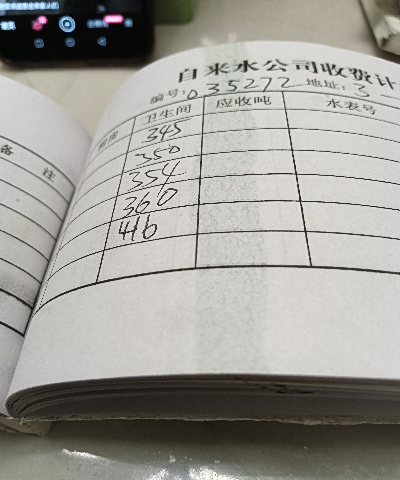 自来水公司收费计
编号:035272 地址:3
备 注
卫生间 应收吨 水表号
345
350
354
360
416